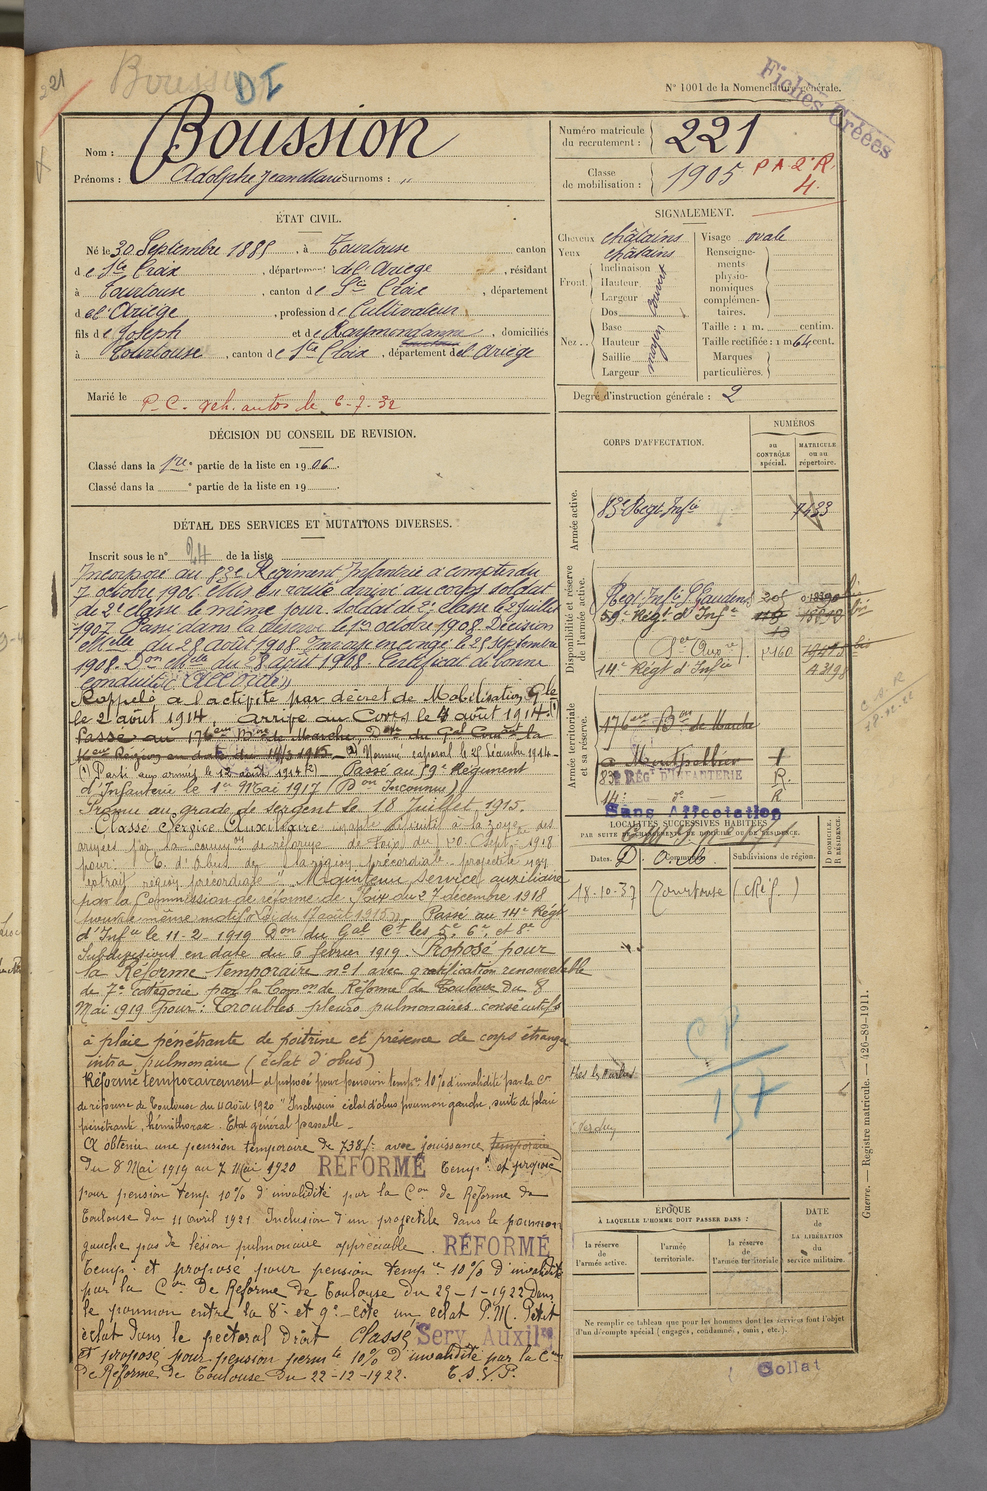 221
Boussion
DI
N° 1001 de la Nomenclature générale.
Fiches Créées
Nom : Boussion
Prénoms : Adolphe Jean Marie Surnoms : "
Numéro matricule du recrutement : 221
Classe de mobilisation : 1905
P A 2e R. 4.
ÉTAT CIVIL.
Né le 30 Septembre 1885, à Tourtouse canton
de Ste Croix, département de l'Ariège, résidant
à Tourtouse, canton de Ste Croix, département
de l'Ariège, profession de Cultivateur
fils de Joseph et de Raymond anne, domiciliés
à Tourtouse, canton de Ste Croix, département de l'Ariège
Marié le
P.C. veh. autos le 6-7-32
SIGNALEMENT.
Cheveux châtains
Yeux châtains
Front. Inclinaison
Hauteur
Largeur
couvert
Nez .. Dos
Base
Hauteur
Saillie
Largeur
moyen
Visage ovale
Renseignements physionomiques complémentaires.
Taille : 1 m. centim.
Taille rectifiée : 1 m 64 cent.
Marques particulières.
Degré d'instruction générale : 2
DÉCISION DU CONSEIL DE REVISION.
Classé dans la 1re partie de la liste en 1906.
Classé dans la ° partie de la liste en 19
DÉTAIL DES SERVICES ET MUTATIONS DIVERSES.
Inscrit sous le n° 24 de la liste
Incorporé au 83e Régiment Infanterie à compter du
7 octobre 1906. Mis en route arrivé au corps soldat
de 2e classe le même jour. Soldat de 1e classe le 2 juillet
1907. Passé dans la réserve le 1er octobre 1908. Décision
Mlle du 28 août 1908. Envoyé en congé le 25 Septembre
1908. Don Mlle du 8 août 1908. Certificat de bonne
conduite "Accordé"
Rappelé à l'activité par décret de Mobilisation Gle
le 2 août 1914, arrivé au Corps le 4 août 1914. (1)
Passé au 176eme Bon de Marche, Don du Gal Comdt la
16eme Région en date du 14/3 1915 (2) Nommé caporal le 25 Décembre 1914
(1) Parti aux armées le 12 août 1914 (2) Passé au 59e Régiment
d'Infanterie le 1er Mai 1917 (Don Inconnue)
Promu au grade de sergent le 18 Juillet 1915.
Classé Service Auxiliaire inapte définitif à la zone des
armées par la comm on de réforme de Foix du 20 Sept. 1918
pour : E. d'obus de la région précordiale projectile non
extrait région précordiale". Maintenu service auxiliaire
par la Commission de réforme de Foix du 27 décembre 1918
pour le même motif du 17 août 1915. Passé au 14e Régt
d'Infie le 11-2-1919 Don du Gal Ct les 5e, 6e, et 8e
Subdivisions en date du 6 février 1919. Proposé pour
la Réforme temporaire n° 1 avec gratification renouvelable
de 7e catégorie par la Comon de Réforme de Toulouse du 8
Mai 1919 pour : Troubles pleuro pulmonaires consécutifs
à plaie pénétrante de poitrine et présence de corps étranger
intra pulmonaire (éclat d'obus)
Réformé temporairement et proposé pour pension tempre 10% d'invalidité par la Con
de réforme de Toulouse du 4 août 1920 "Inclusion éclat d'obus poumon gauche, suite de plaie
pénétrante, hémithorax. Etat général passable.
A obtenu une pension temporaire de 738f. avec jouissance temporaire
du 8 Mai 1919 au 7 Mai 1920 RÉFORMÉ Tempre et proposé
pour pension temp. 10% d'invalidité par la Con de Réforme de
Toulouse du 11 avril 1921. Inclusion d'un projectile dans le poumon
gauche pas de lésion pulmonaire appréciable. RÉFORMÉ
Temp. et proposé pour pension tempre 10% d'invalidité
par la Con de Réforme de Toulouse du 29-1-1922 Dans
le poumon entre la 8e et 9e côte un éclat P.M. Petit
éclat dans le pectoral droit Classé Serv. Auxilre
et proposé pour pension permte 10% d'invalidité par la Con
de Réforme de Toulouse du 22-12-1922. T.S.V.P.
CORPS D'AFFECTATION.
NUMÉROS
au CONTRÔLE spécial.
MATRICULE ou au répertoire.
Armée active.
83e Régt Infie 7433
Disponibilité et réserve de l'armée active.
Régt Infie St Gaudens 205
59e Régt d'Infie
14e Régt d'Infie 43198
Armée territoriale et sa réserve.
176eme Bon de Marche
Montpellier 1
83e RÉGt D'INFANTERIE R.
14e do R
Sans Affectation
C. d. R
LOCALITÉS SUCCESSIVES HABITÉES
PAR SUITE DE CHANGEMENTS DE DOMICILE OU DE RÉSIDENCE.
Dates. Communes. Subdivisions de région. D DOMICILE. R RÉSIDENCE.
18-10-37 Tourtouse (Réf.)
CP
157
ÉPOQUE
À LAQUELLE L'HOMME DOIT PASSER DANS :
la réserve de l'armée active.
l'armée territoriale.
la réserve de l'armée territoriale
DATE de LA LIBÉRATION du service militaire.
Ne remplir ce tableau que pour les hommes dont les services font l'objet
d'un décompte spécial (engagés, condamnés, omis, etc.).
Collat
Guerre. — Registre matricule. — 426-89-1911.